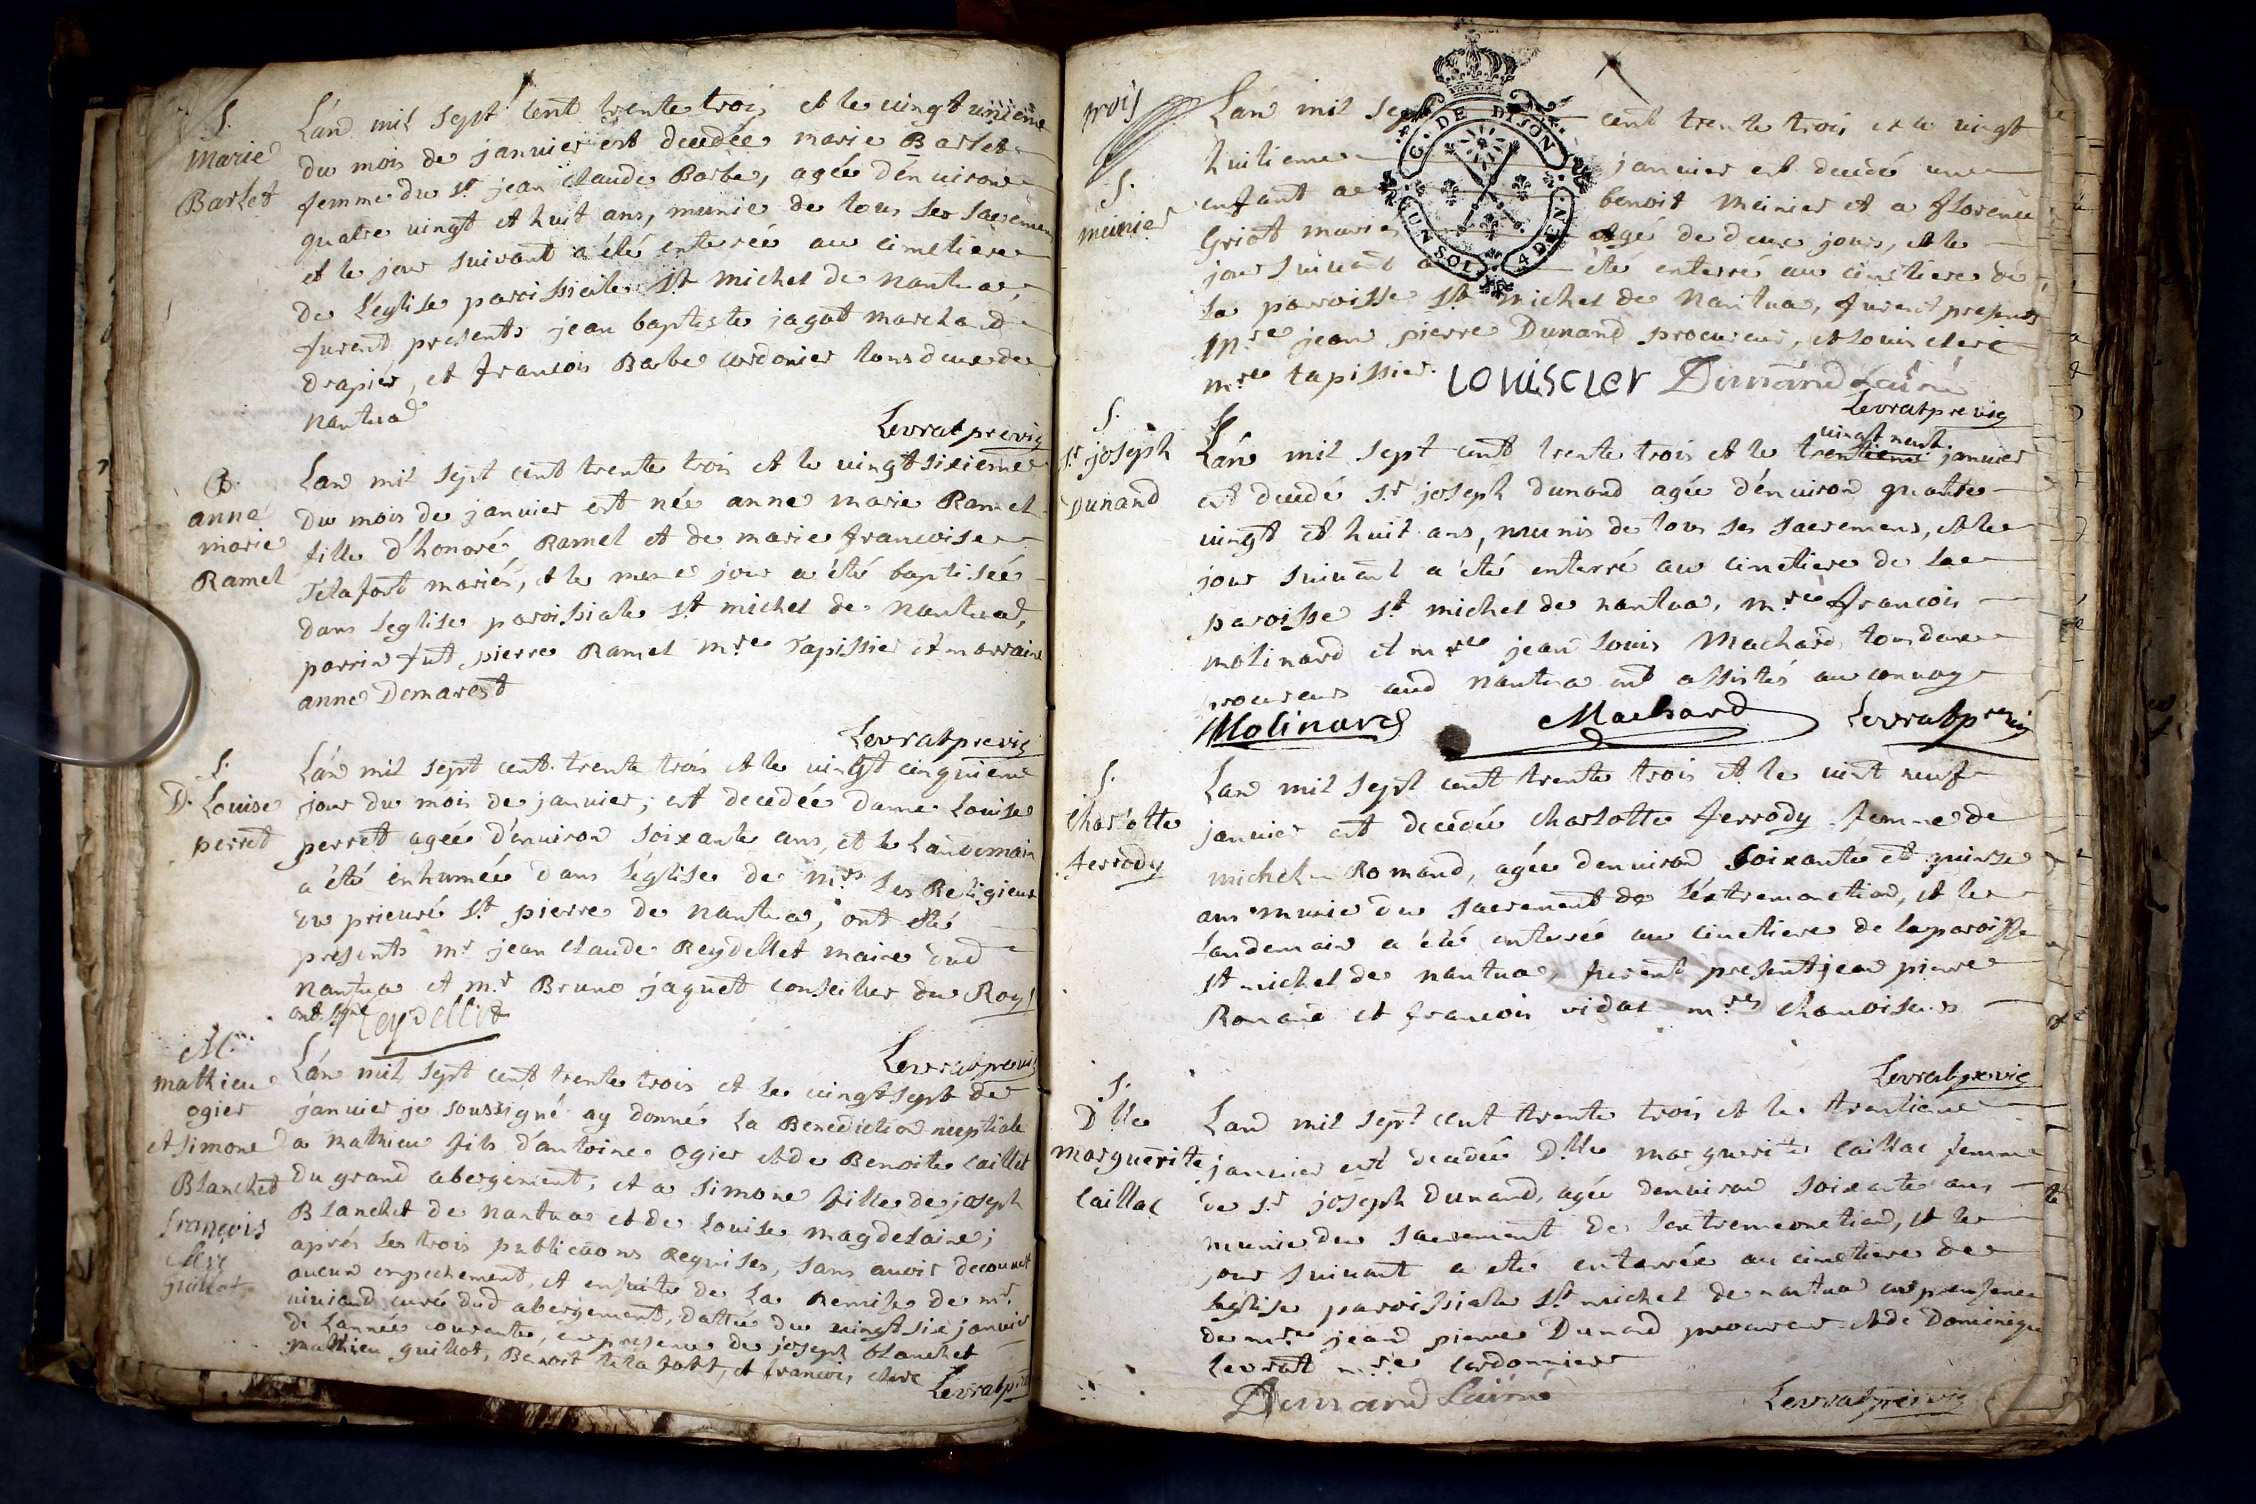 S.
Marie
Barlet
L'an mil sept cent trente trois et le vingt unieme
du mois de janvier est decedée marie Barlet
femme du Sr jean claude Barbe, agée d'environ
quatre vingt et huit ans, munie de tous ses sacremens
et le jour suivant a été enterrée au cimetiere
de l'eglise paroissiale St michel de nantua,
furent presents jean baptiste jagot marchand
drapier, et francois Barbe cordonier tous deux de
nantua
Levrat previc
B.
anne
marie
Ramel
L'an mil sept cent trente trois et le vingt sixieme
du mois de janvier est née anne marie Ramel
fille d'honoré Ramel et de marie francoise
Telafort mariés, et le meme jour a été baptisée
dans l'eglise paroissiale St michel de nantua,
parrin fut pierre Ramel mre Tapissier et marraine
anne Demarest
Levrat previc
S.
D. Louise
perret
L'an mil sept cent trente trois et le vingt cinquieme
jour du mois de janvier, est decedée dame Louise
perret agée d'environ soixante ans, et le landemain
a été inhumée dans l'eglise de mrs Les Religieux
du prieuré St pierre de nantua, ont été
presents mr jean claude Reydellet maire dud
nantua et mr Bruno jaquet conseiller du Roy
ont signé Reydellet
Levrat previc
M.
mathieu
ogier
et simone
Blanchet
françois
clerc
guillot
L'an mil sept cent trente trois et le vingt sept de
janvier je soussigné ay donné La Benediction nuptiale
a mathieu fils d'antoine ogier et de Benoite caillet
du grand abergement, et a simone fille de joseph
Blanchet de nantua et de Louise magdelaine;
aprés les trois publications Requises, sans avoir decouvert
aucun enpechement, et ensuite de La Remise de mr.
viviand curé dud abergement, dattée du vingt six janvier
de L'année courante, en presence de joseph blanchet
mathieu guillot, Benoit telafort, et francois clerc
Levrat previc
trois
S.
meinier
L'an mil sept cent trente trois et le vingt
huitieme janvier est decedé un
enfant a benoit meinier et a florence
Griot mariés agé de deux jours, et le
jour suivant a été enterré au cimetiere de
la paroisse St michel de Nantua, furent presents
Mre jean pierre Dunand procureur, et Louis clerc
mre tapissier. Louis cler Dunand Lainé
G. DE DIJON
UN SOL 4 DEN.
Levrat previc
S.
Sr joseph
Dunand
L'an mil sept cent trente trois et le trentieme janvier
vingt neuf
est decedé Sr joseph dunand agée d'environ quatre
vingt et huit ans, munis de tous ses sacremens, et le
jour suivant a été enterré au cimetiere de la
paroisse St michel de nantua, mre francois
molinard et mre jean Louis Machard tous deux
procureurs aud nantua ont assistés au convoy
Molinard Machard Levrat previc
S.
charlotte
ferrody
L'an mil sept cent trente trois et le vint neuf
janvier est decedée charlotte ferrody femme de
michel Romand, agée denviron soixante et quinze
ans munie du sacrement de l'extremonction, et le
landemain a été enterrée au cimetiere de la paroisse
St michel de nantua, furent present jean pierre
Romand et francois vidal mres chamoiseurs
Levrat previc
S.
Dlle
marguerite
Caillac
L'an mil sept cent trente trois et le trentieme
janvier est decedée Dlle marguerite Caillac femme
de Sr joseph Dunand, agée denviron soixante ans
munie du sacrement de lextremeonction, et le
jour suivant a eté enterrée au cimetiere de
leglise paroissiale St michel de nantua en presence
de mre jean pierre Dunand procureur et de Dominique
levrat mre cordonnier
Dunand Lainé Levrat previc